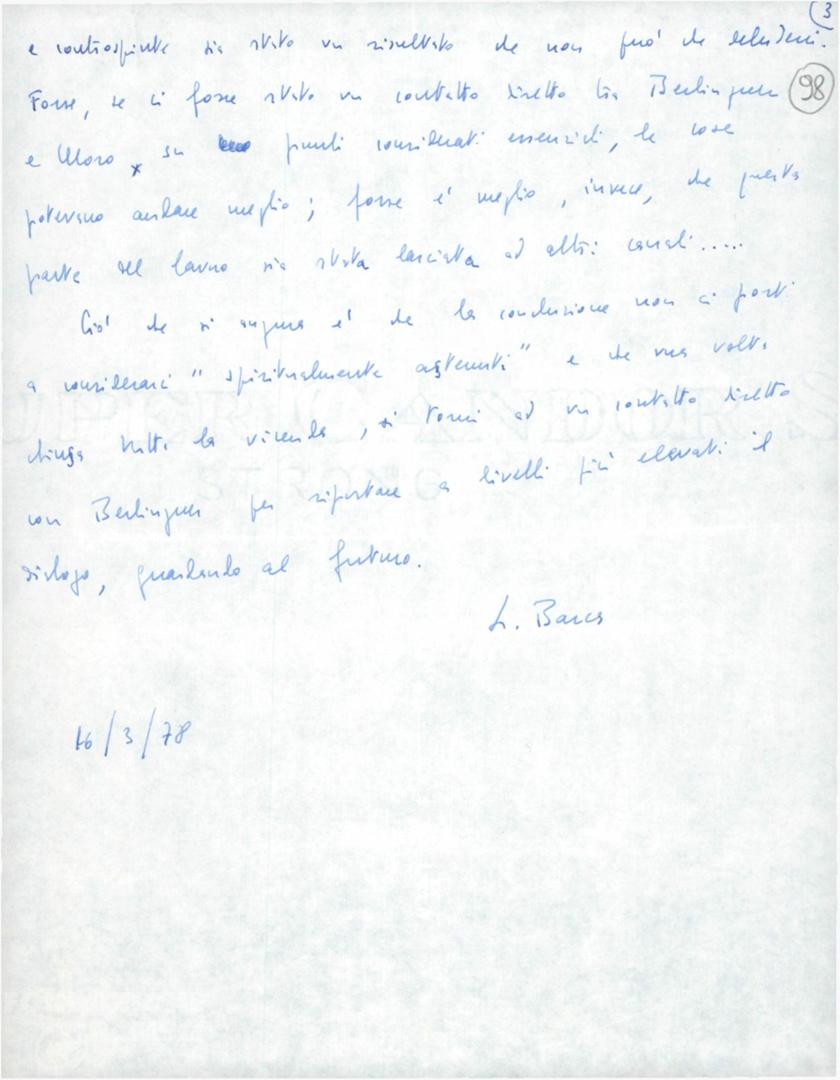 3
e controspinte sia stato un risultato che non può che deluderci.
Forse, se ci fosse stato un contatto diretto tra Berlinguer
98
e Moro x su punti considerati essenziali, le cose
potevano andare meglio; forse è meglio, invece, che questa
parte del lavoro sia stata lasciata ad altri canali.....
Ciò che si augura è che la conclusione non ci porti
a considerarci "spiritualmente astenuti" e che una volta
chiusa tutta la vicenda, si torni ad un contatto diretto
con Berlinguer per riportare a livelli più elevati il
dialogo, guardando al futuro.
L. Barca
16/3/78